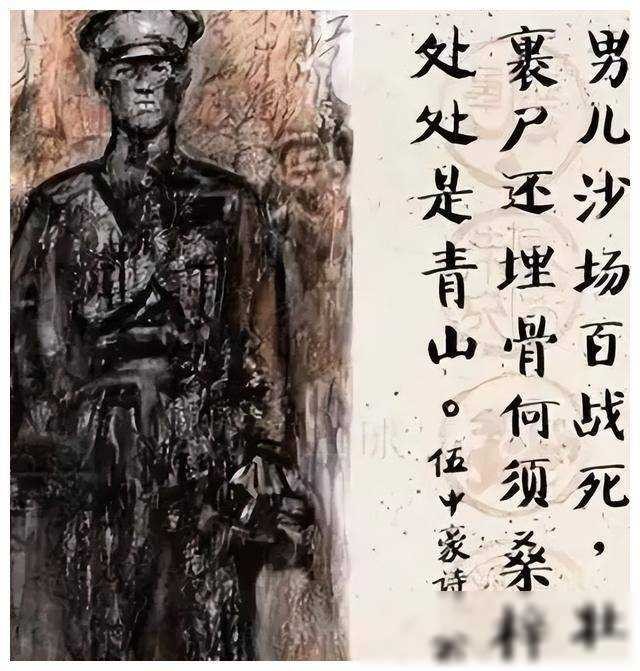 男儿沙场百战死，壮
裹尸还埋骨何须桑梓
处处是青山。伍中豪诗